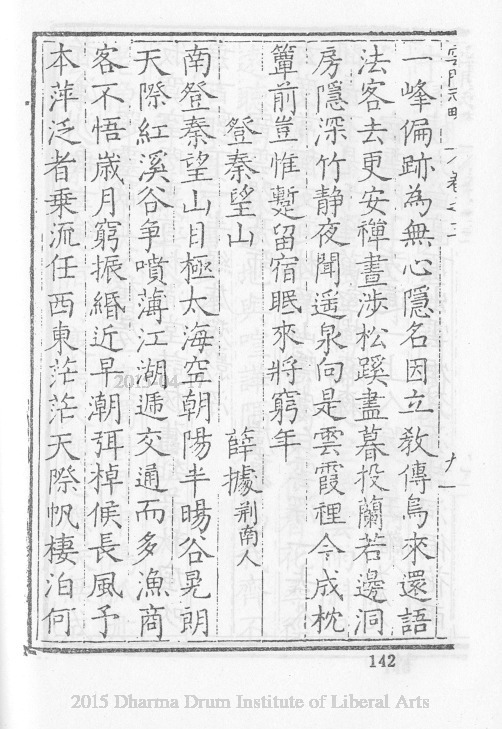 一峰偏跡為無心隱名因立敎傳鳥來還語
法客去更安禪晝涉松蹊盡暮投蘭若邊洞
房隱深竹静夜聞遥泉向是雲霞裡今成枕
簟前豈惟蹔留宿眠來將窮年
登秦望山
薛據荆南人
南登秦望山目極太海空朝陽半暘谷晃朗
天際紅溪谷争噴薄江湖遞交通而多漁商
客不悟歲月窮振緡近早潮弭棹候長風予
本萍泛者乗流任西東茫茫天際帆棲泊何
142
2015 Dharma Drum Institute of Liberal Arts